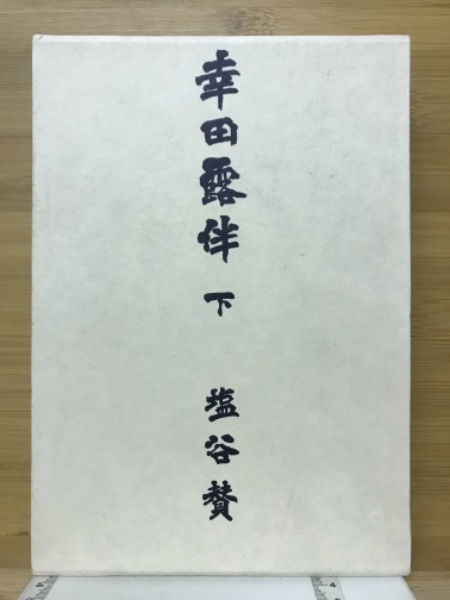 幸田露伴 下 塩谷賛